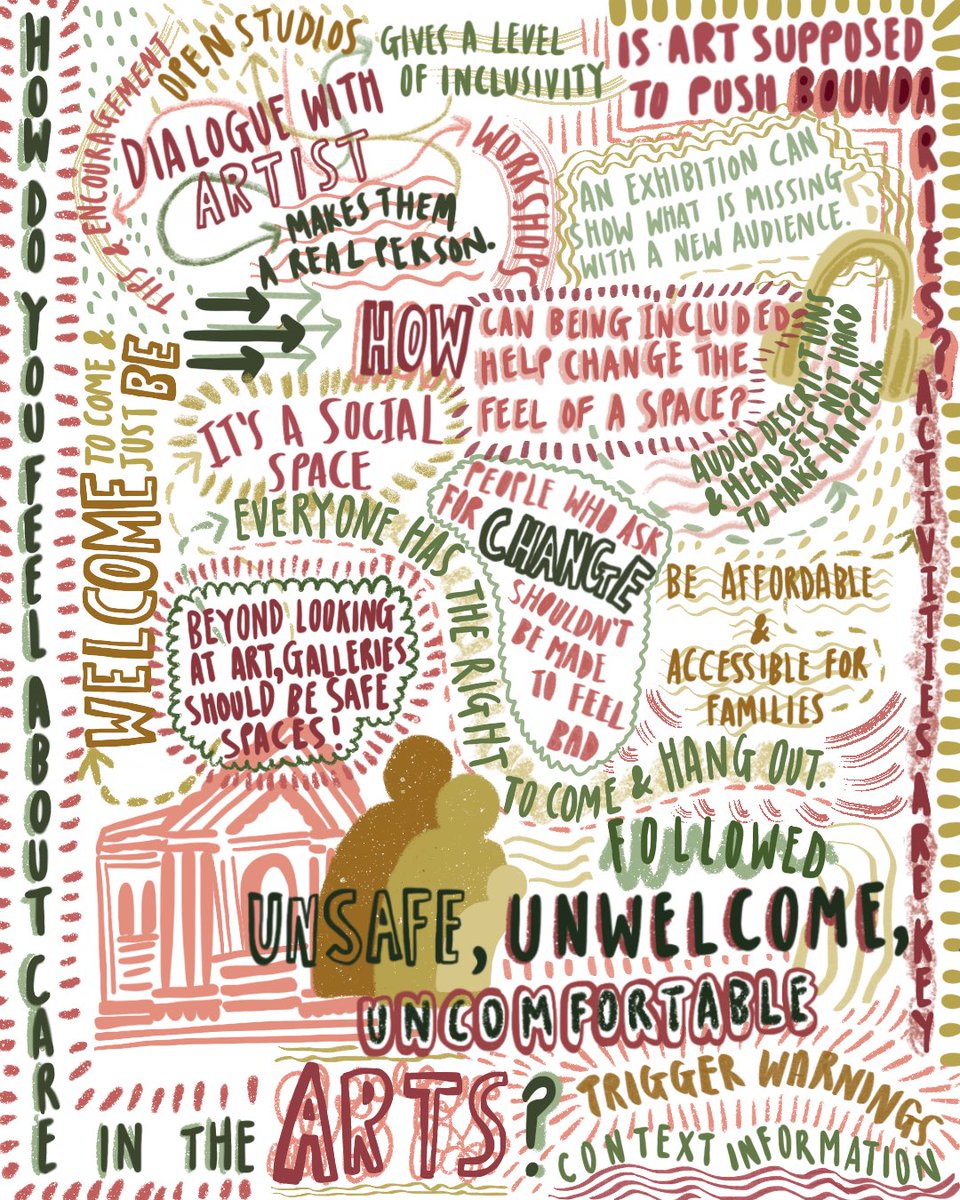 HOW DO YOU FEEL ABOUT CARE
IN THE ARTS?
TIPS & ENCOURAGEMENT
OPEN STUDIOS
GIVES A LEVEL
OF INCLUSIVITY
IS ART SUPPOSED
TO PUSH BOUNDARIES?
DIALOGUE WITH
ARTIST
MAKES THEM
A REAL PERSON.
WORKSHOPS
AN EXHIBITION CAN
SHOW WHAT IS MISSING
WITH A NEW AUDIENCE.
WELCOME TO COME &
JUST BE
HOW CAN BEING INCLUDED
HELP CHANGE THE
FEEL OF A SPACE?
AUDIO DESCRIPTIONS
& HEAD SETS IS NOT HARD
TO MAKE HAPPEN.
IT'S A SOCIAL
SPACE
EVERYONE HAS THE RIGHT TO COME & HANG OUT.
PEOPLE WHO ASK
FOR CHANGE
SHOULDN'T
BE MADE
TO FEEL
BAD
BE AFFORDABLE
&
ACCESSIBLE FOR
FAMILIES
ACTIVITIES ARE KEY
BEYOND LOOKING
AT ART, GALLERIES
SHOULD BE SAFE
SPACES!
FOLLOWED
UNSAFE, UNWELCOME,
UNCOMFORTABLE
TRIGGER WARNINGS
CONTEXT INFORMATION